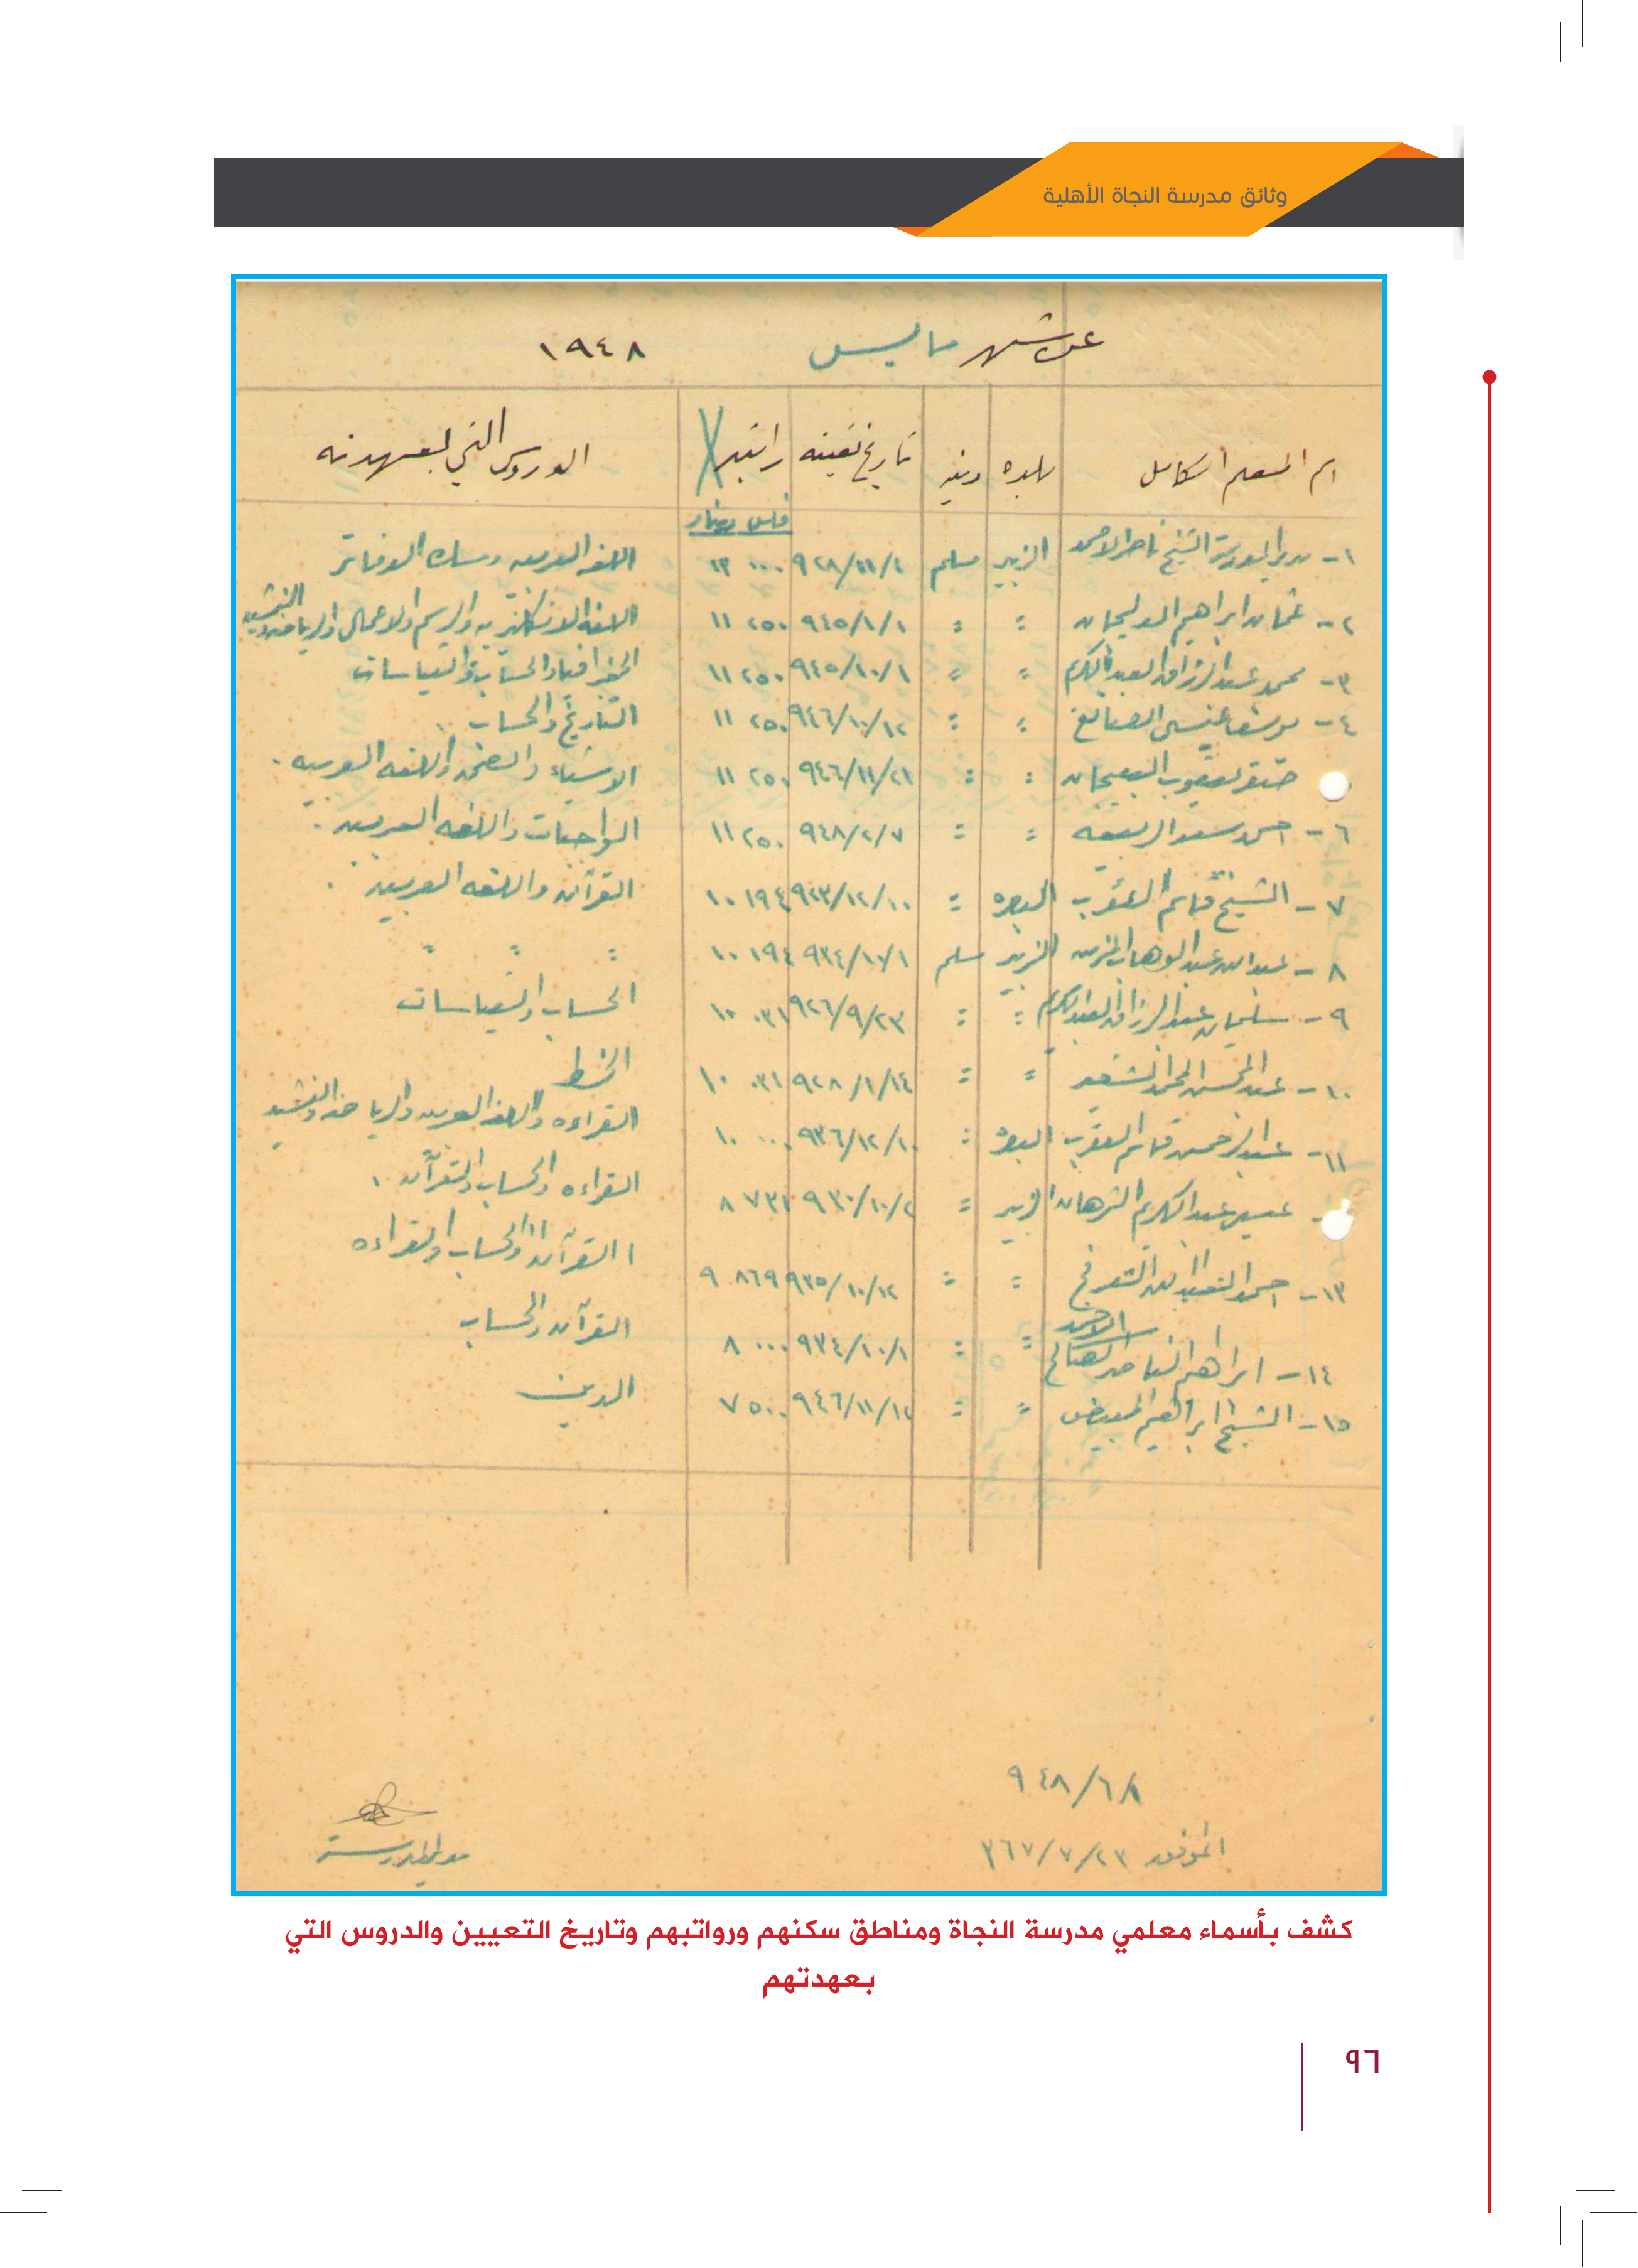 وثائق مدرسة النجاة الأهلية
عن شهر مايس ١٩٤٨
اسم المعلم الكامل بلده دينه تاريخ تعيينه راتبه الدروس التي بعهدته
فلس دينار
١- مدير المدرسة الشيخ ناصر الاحمد الزبير مسلم ٩٢٨/١١/١ ٠٠٠ ١٣ اللغة العربية ومسك الدفاتر
٢- عثمان ابراهيم : : ٩٤٥/١/١ ٢٥٠ ١١ اللغة الانكليزية والرسم والاعمال والرياضة والنشيد
٣- محمد عبد الرزاق العبد الكريم : : ٩٤٥/١٠/١ ٢٥٠ ١١ الجغرافيا والحساب والسياسات
٤- يوسف عيسى الصانع : : ٩٤٦/١٠/١٢ ٢٥٠ ١١ التاريخ والحساب
صقر يعقوب : : ٩٤٦/١١/٢١ ٢٥٠ ١١ الاشياء والصحة واللغة العربية .
٦- احمد سعد الربيعة : : ٩٤٨/٢/٧ ٢٥٠ ١١ الواجبات واللغة العربية .
٧- الشيخ قاسم العقرب البصره : ٩٢٣/١٢/١٠ ١٩٤ ١٠ القرآن واللغة العربية .
٨- عبد الله عبد الوهاب الزبير مسلم ٩٣٤/١٠/١ ١٩٤ ١٠ : : :
٩- سليمان عبد الرزاق العبد الكريم : : ٩٢٦/٩/٢٣ ٠٣١ ١٠ الحساب والسياسات
١٠- عبد المحسن المحمد : : ٩٢٨/١/١٤ ٠٣١ ١٠ الخط
١١- عبد الرحمن قاسم العقرب البصره : ٩٣٦/١٢/١٠ ٠٠٠ ١٠ القراءه واللغة العربية والرياضة والنشيد
عبد الكريم الزبير : ٩٣٠/١٠/٢ ٧٣١ ٨ القراءه والحساب والقرآن .
١٣- احمد : : ٩٣٥/١٠/١٢ ٨٦٩ ٩ القرآن والحساب والقراءه
١٤- ابراهيم الناصر الاحمد : : ٩٣٤/١٠/١ ٠٠٠ ٨ القرآن والحساب
١٥- الشيخ ابراهيم المبيض : : ٩٤٦/١١/١٢ ٥٠٠ ٧ الدين
٩٤٨/٦/١
الموافق ٣٦٧/٧/٢٣
مدير المدرسة
كشف بأسماء معلمي مدرسة النجاة ومناطق سكنهم ورواتبهم وتاريخ التعيين والدروس التي
بعهدتهم
٩٦